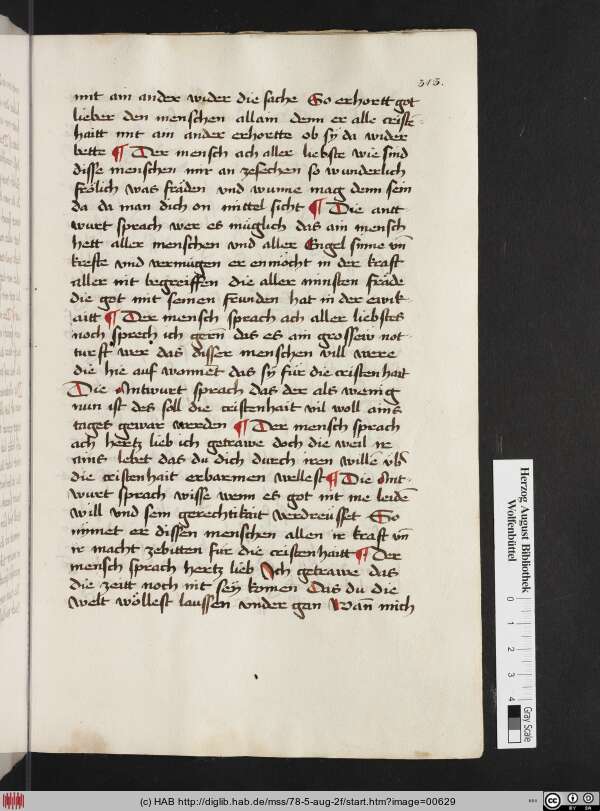 313.
mit am ander wider die sache So erhortt got
lieber den menschen allain denn er alle cristē-
haitt mit am ander erhortte ob sÿ da wider
bette ¶ Der mensch ach aller liebste wie sind
disse menschen mir an zesechen so wunderlich
frölich was fräden vnd wunne mag denn sein
da da man dich on mittel sicht ¶ Die antt
wurt sprach wer es müglich das ain mensch
hett aller menschen vnd aller Engel sinne vn̄
krefte vnd vermügen er enmöcht in der kraft
aller nit begreiffen die aller minsten fräde
die got mit seinen frewnden hat in der ewik
aitt ¶ Der mensch sprach ach aller liebstes
noch sprech ich gern das es ain grossew not
turft wer das disser menschen vill were
die hie auf wonnet das sÿ für die cristenhait
Die Antwurt sprach das der als wenig
nun ist des soll die cristenhait vil woll ains
tages gewar werden ¶ Der mensch sprach
ach hertz lieb ich getrawe doch die weil ir
ains lebet das du dich durch iren wille vb̄
die cristenhait erbarmen wellest ¶ Die Ant-
wurt sprach wisse wenn es got nit me leidē
will vnd sein gerechtikait verdreüsset So
nimet er dissen menschen allen ir kraft vn̄
ir macht zebitten für die cristenhaitt ¶ Der
mensch sprach hertz lieb Ich getrawe das
die zeitt noch nit seÿ komen Das du die
welt wöllest laussen vnder gan Wan̄ mich
Herzog August Bibliothek
Wolfenbüttel
0 1 2 3 4
Gray Scale
(c) HAB http://diglib.hab.de/mss/78-5-aug-2f/start.htm?image=00629